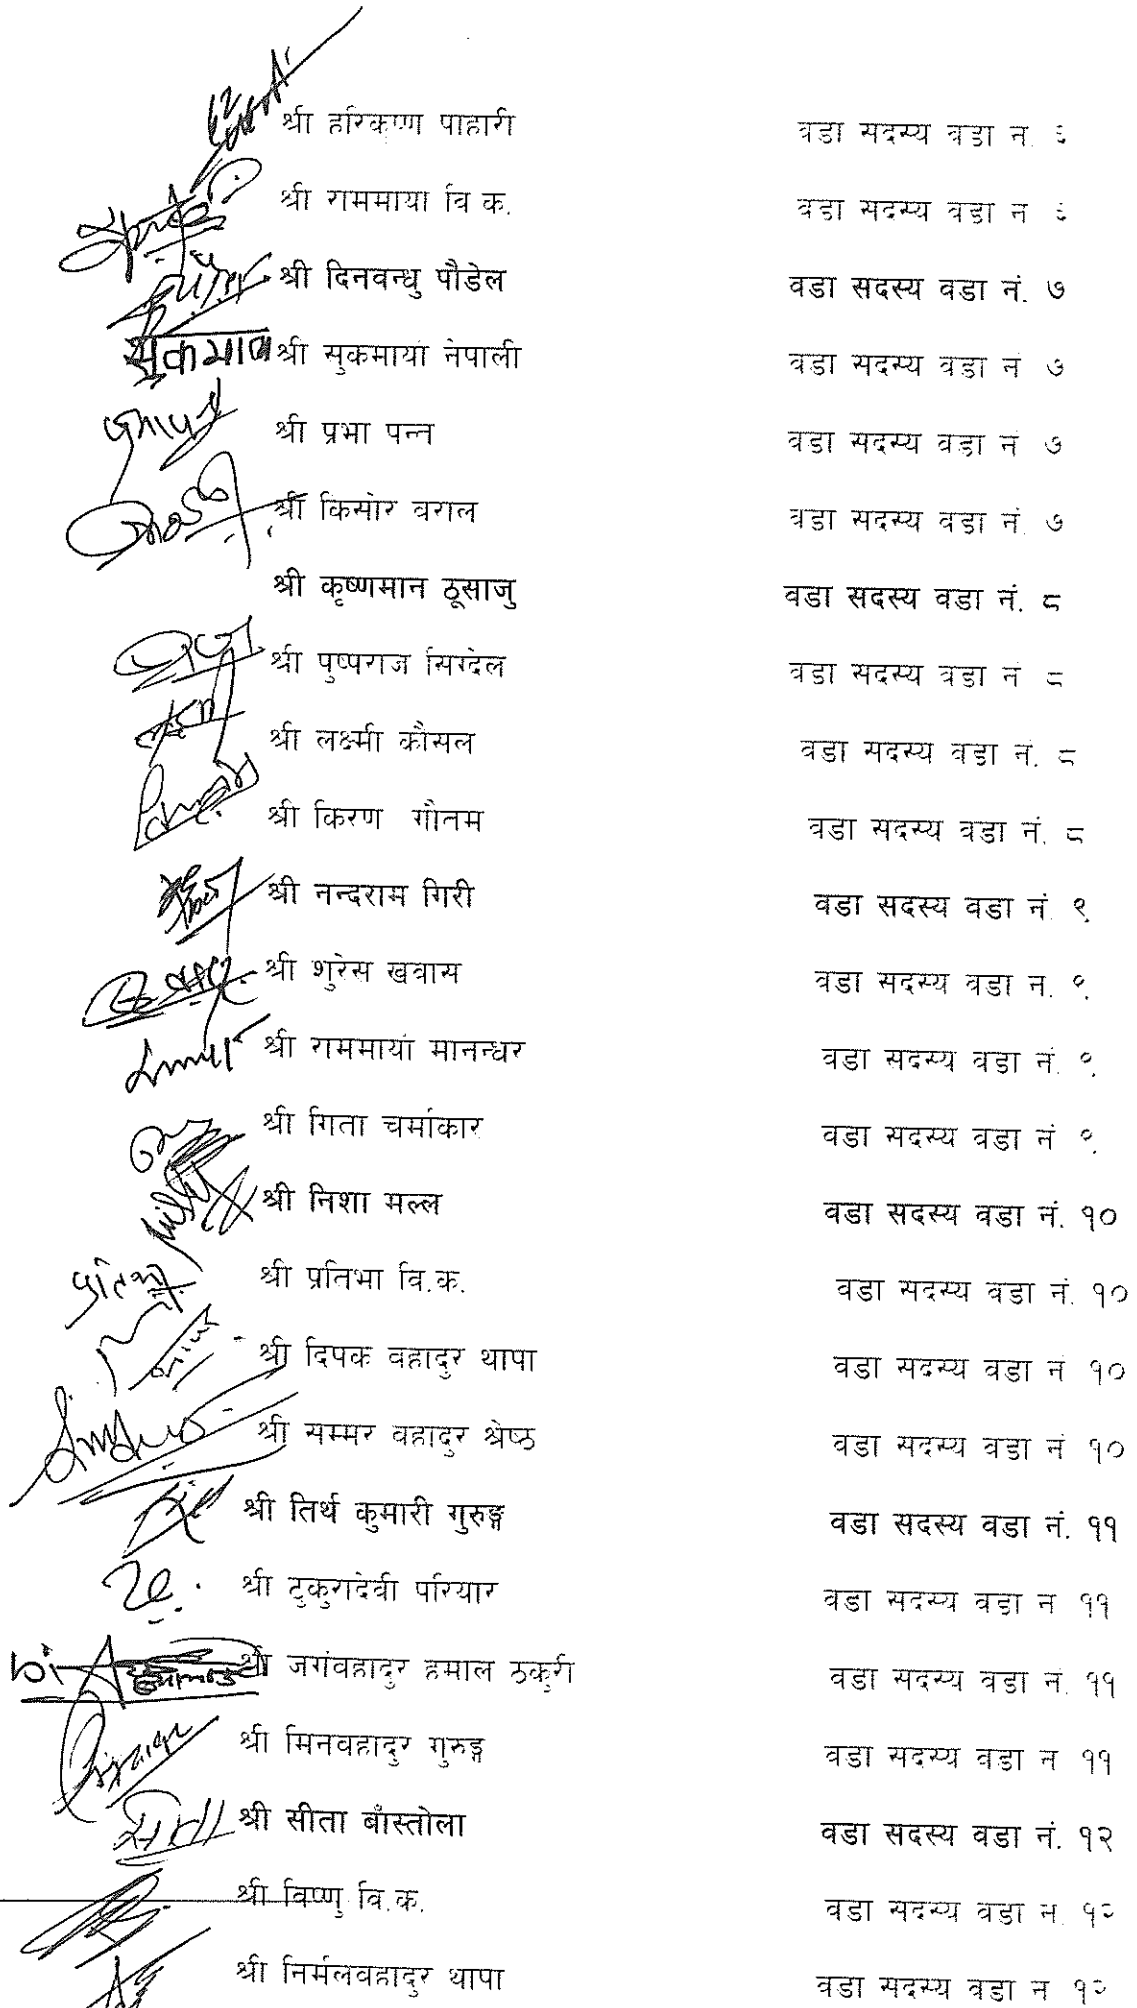 श्री हरिकृष्ण पाहारी वडा सदस्य वडा न. ६
श्री राममाया वि क. वडा सदस्य वडा न ६
श्री दिनवन्धु पौडेल वडा सदस्य वडा नं. ७
सुकमाया श्री सुकमाया नेपाली वडा सदस्य वडा नं ७
श्री प्रभा पन्त वडा सदस्य वडा नं ७
श्री किसोर वराल वडा सदस्य वडा नं. ७
श्री कृष्णमान ठूसाजु वडा सदस्य वडा नं. ८
श्री पुष्पराज सिग्देल वडा सदस्य वडा नं ८
श्री लक्ष्मी कौसल वडा सदस्य वडा नं. ८
श्री किरण गौतम वडा सदस्य वडा नं. ८
श्री नन्दराम गिरी वडा सदस्य वडा नं. ९
श्री शुरेस खवास वडा सदस्य वडा न. ९
श्री राममाया मानन्धर वडा सदस्य वडा नं. ९
श्री गिता चर्माकार वडा सदस्य वडा नं ९
श्री निशा मल्ल वडा सदस्य वडा नं. १०
श्री प्रतिभा वि.क. वडा सदस्य वडा नं. १०
श्री दिपक वहादुर थापा वडा सदस्य वडा नं १०
श्री सम्मर वहादुर श्रेष्ठ वडा सदस्य वडा नं १०
श्री तिर्थ कुमारी गुरुङ्ग वडा सदस्य वडा नं. ११
श्री टुकुरादेवी परियार वडा सदस्य वडा न ११
श्री जगंवहादुर हमाल ठकुरी वडा सदस्य वडा न. ११
श्री मिनवहादुर गुरुङ्ग वडा सदस्य वडा न ११
सीता श्री सीता बाँस्तोला वडा सदस्य वडा नं. १२
श्री विष्णु वि.क. वडा सदस्य वडा न. १२
श्री निर्मलवहादुर थापा वडा सदस्य वडा न १२